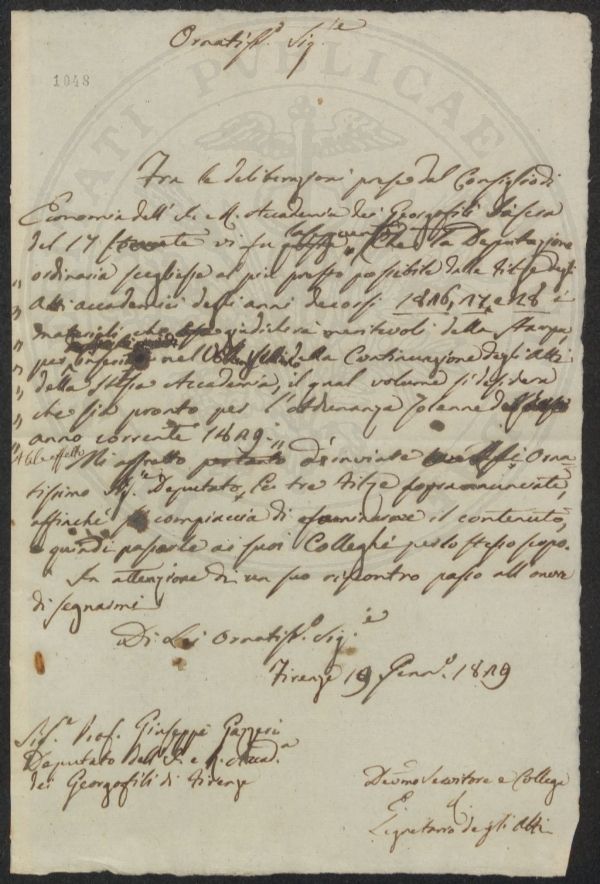 Ornatiss.º Sig.ʳᵉ
1048
ATI PVBLICAE
Fra le deliberazioni prese dal Consiglio di
Economia dell'I. e R. Accademia dei Georgofili la sera
del 17 vi fu la seguente „ Che la Deputazione
„ ordinaria scegliesse al più presto possibile dalle filze degli
„ Atti accademici degli anni decorsi 1826, 27, e 28 i
„ materiali che giudicherà meritevoli della Stampa,
„ per nel della Continuazione degli Atti
„ della stessa Accademia, il qual volume si desidera
„ che sia pronto per l'adunanza solenne
„ anno corrente 1829 „
A tale effetto
Mi affretto d'inviare Orna
tissimo Sig.ʳ Deputato, le tre filze soprannunciate,
affinché si compiaccia di esaminarne il contenuto,
e quindi passarle ai suoi Colleghi per lo stesso scopo.
In attenzione di un suo riscontro passo all'onore
di segnarmi
Di Lei Ornatiss.º Sig.ʳᵉ
Firenze 19 Genn.º 1829
Sig.ʳ Prof. Giuseppe Gazzeri
Deputato dell'I. e R. Accad.ª
dei Georgofili di Firenze
Dev.mo Servitore e Collega
Segretario degli Atti